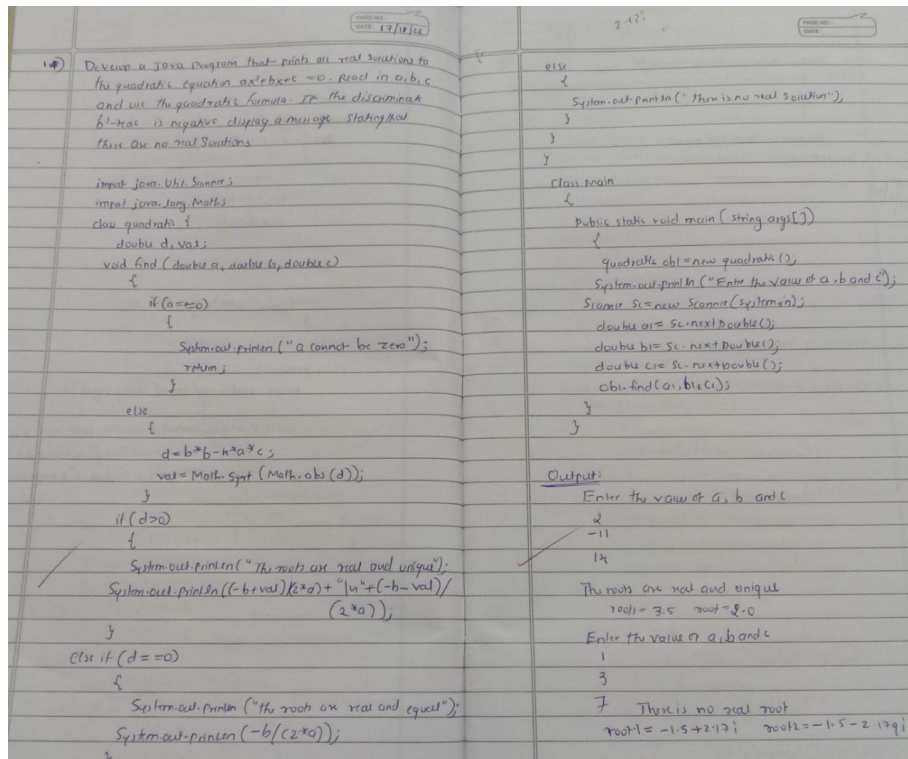 PAGE NO:
DATE:
1*)
Develop a Java Program that prints all real solutions to
the quadratic equation ax²+bx+c =0. Read in a,b,c
and use the quadratic formula. If the discriminate
b²-4ac is negative display a message stating that
there are no real Solutions
import java.util.Scanner;
import java.lang.Math;
class quadratic {
double d, val;
void find (double a, double b, double c)
{
if (a==0)
{
System.out.println ("a cannot be zero");
return;
}
else
{
d=b*b-4*a*c;
val= Math.sqrt (Math.abs (d));
}
if (d>0)
{
System.out.println(" The roots are real and unique");
System.out.println((-b+val)/(2*a)+ "\n"+(-b-val)/
(2*a));
}
Else if (d==0)
{
System.out.println ("the roots are real and equal");
System.out.println(-b/(2*a));
2.17i
PAGE NO:
DATE:
else
{
System.out.println (" there is no real solution");
}
}
}
Class Main
{
public static void main ( string args[])
{
quadratic ob1=new quadratic ();
System.out.println ("Enter the value of a, b and c");
Scanner Sc=new Scanner(system.in);
double a1= Sc.nextDouble();
double b1= Sc.nextDouble();
double c1= Sc.nextDouble();
ob1.find(a1,b1,c1);
}
}
Output:
Enter the value of a, b and c
2
-11
14
The roots are real and unique
root1= 3.5 root=2.0
Enter the value of a, b and c
1
3
7 There is no real root
root1= -1.5+2.17i root2= -1.5-2.179i